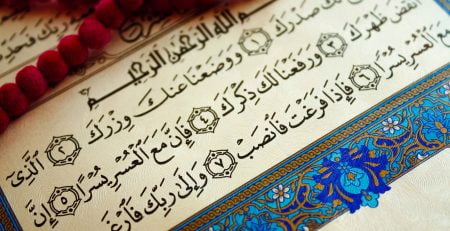 رَبِّكَ
بِسْمِ اللَّهِ الرَّحْمَٰنِ الرَّحِيمِ
لَكَ صَدْرَكَ وَوَضَعْنَا عَنكَ وِزْرَكَ ٢ الَّذِي
أَنقَضَ ظَهْرَكَ ٣ وَرَفَعْنَا لَكَ ذِكْرَكَ ٤ فَإِنَّ مَعَ الْعُسْرِ يُسْرًا ٥ إِنَّ
مَعَ الْعُسْرِ يُسْرًا ٦ فَإِذَا فَرَغْتَ فَانصَبْ ٧ وَإِلَىٰ رَبِّكَ